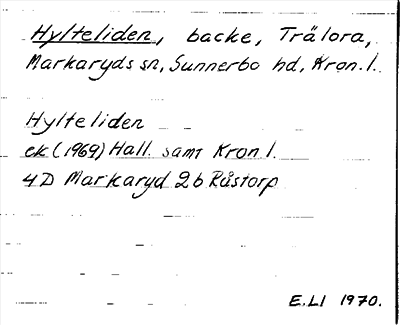 Hylteliden, backe, Trälora,
Markaryds sn, Sunnerbo hd, Kron.l.
Hylteliden
ek (1969) Hall. samt Kron l.
4D Markaryd 2b Råstorp
E.LI 1970.